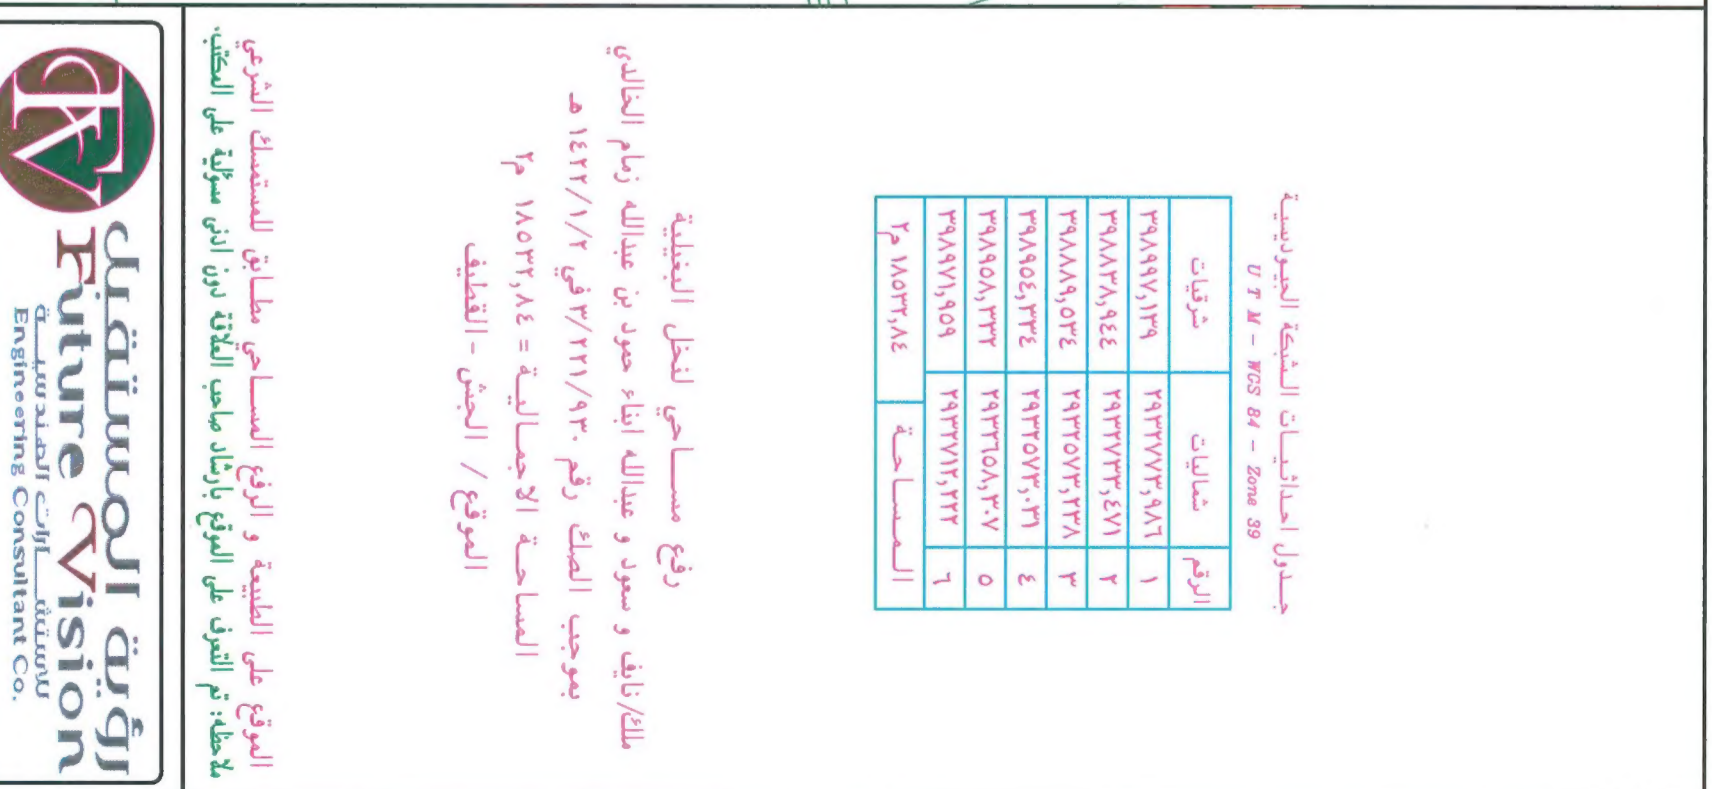 جـدول احداثـيـات الـشبكة الجيـوديسيـة
U T M - WGS 84 - Zone 39
الرقم شماليات شرقيات
١ ٢٩٣٢٧٧٣,٩٨٦ ٣٩٨٩٩٧,١٣٩
٢ ٢٩٣٢٧٣٣,٤٧١ ٣٩٨٨٣٨,٩٤٤
٣ ٢٩٣٢٥٧٣,٢٣٨ ٣٩٨٨٨٩,٥٣٤
٤ ٢٩٣٢٥٧٣,٠٣١ ٣٩٨٩٥٤,٣٣٤
٥ ٢٩٣٢٦٥٨,٣٠٧ ٣٩٨٩٥٨,٣٢٢
٦ ٢٩٣٢٧١٢,٢٢٢ ٣٩٨٩٧١,٩٥٩
الـمـسـاحـة ١٨٥٣٢,٨٤ م٢
رفع مسـاحي لنخل البغيلية
ملك/ نايف و سعود و عبدالله ابناء حمود بن عبدالله زمام الخالدي
بموجب الصك رقم ٣/٢٢١/٩٣٠ في ١٤٢٢/١/٢ هـ
المساحـة الاجمـالية = ١٨٥٣٢,٨٤ م٢
الموقع / الجش - القطيف
الموقع على الطبيعة و الرفع المساحي مطابق للمستمسك الشرعي
ملاحظه: تم التعرف على الموقع بارشاد صاحب العلاقة دون ادنى مسؤلية على المكتب.
رؤية المستقبل
Future Vision
للاستشارات الهندسية
Engineering Consultant Co.
FV